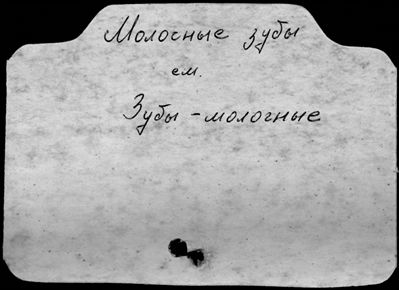 Молочные зубы
см.
Зубы - молочные